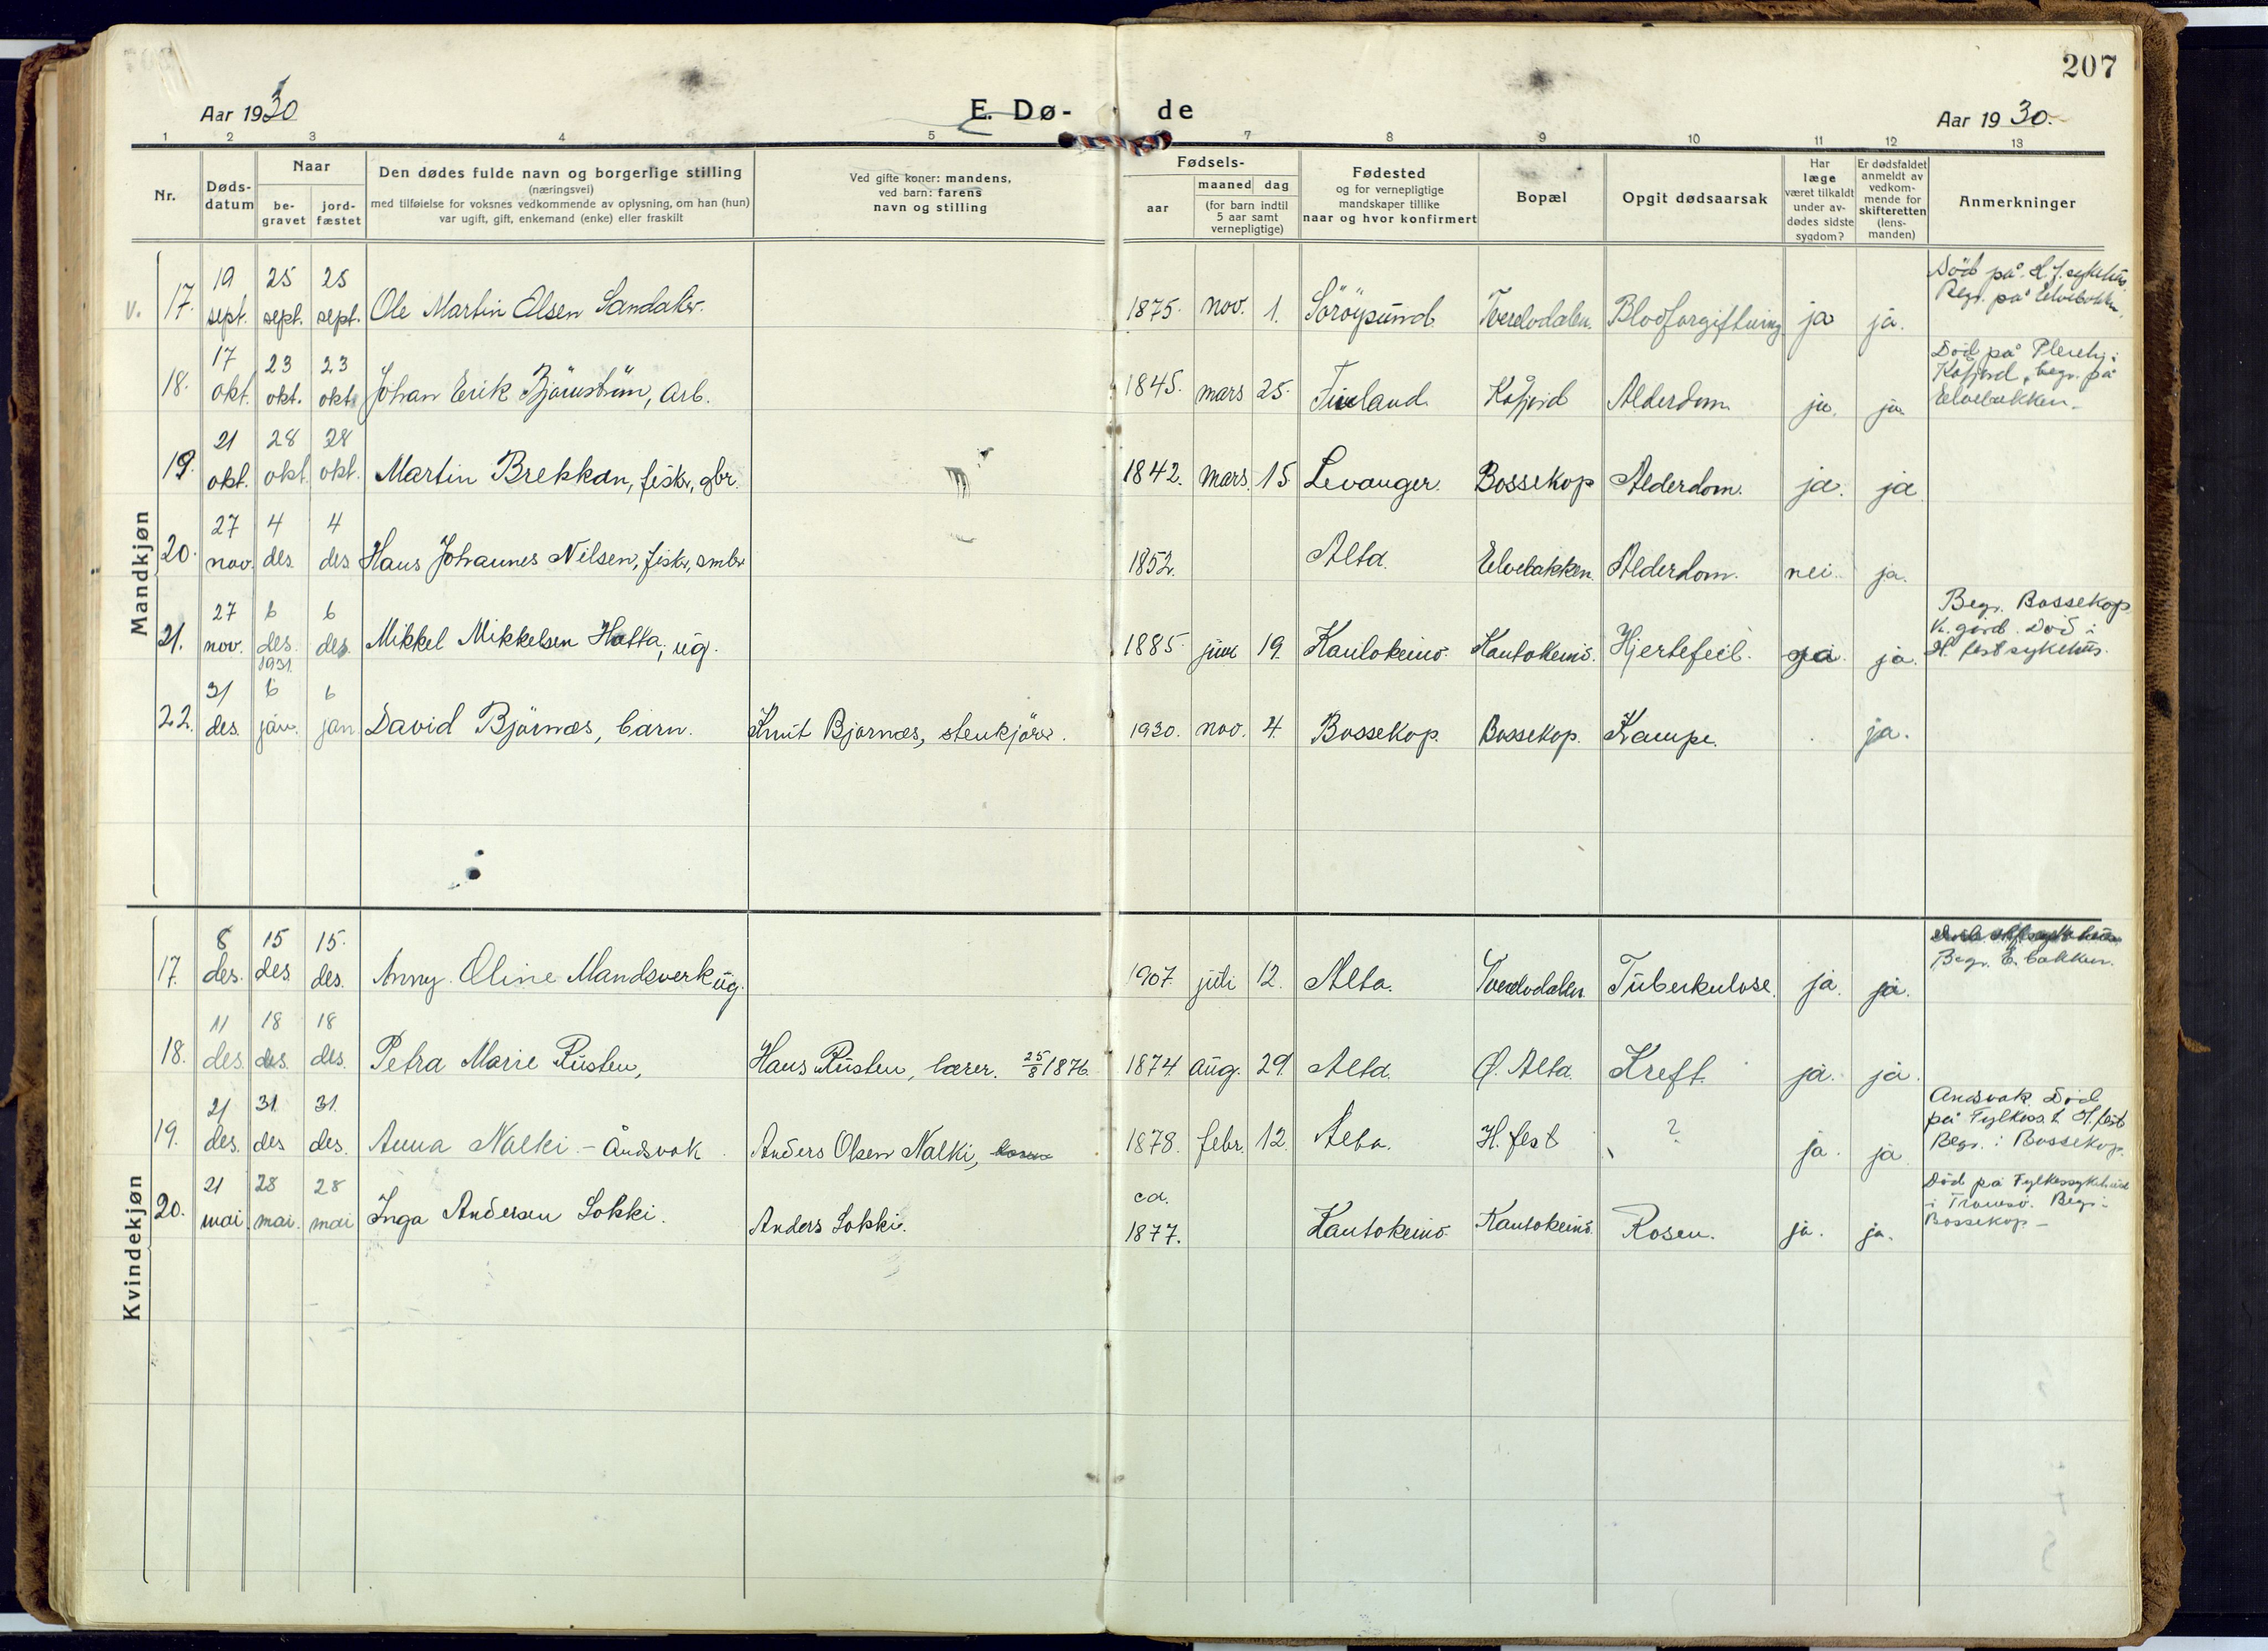 207
Aar 1930
E. Dø-
de
Aar 1930.
1 2 3 4 5 7 8 9 10 11 12 13
Nr.
Døds-
datum
Naar
be-
gravet
jord-
fæstet
Den dødes fulde navn og borgerlige stilling
(næringsvei)
med tilføielse for voksnes vedkommende av oplysning, om han (hun)
var ugift, gift, enkemand (enke) eller fraskilt
Ved gifte koner: mandens,
ved barn: farens
navn og stilling
Fødsels-
aar
maaned dag
(for barn indtil
5 aar samt
vernepligtige)
Fødested
og for vernepligtige
mandskaper tillike
naar og hvor konfirmert
Bopæl
Opgit dødsaarsak
Har
læge
været tilkaldt
under av-
dødes sidste
sygdom?
Er dødsfaldet
anmeldt av
vedkom-
mende for
skifteretten
(lens-
manden)
Anmerkninger
Mandkjøn
v. 17. 19 sept. 25 sept. 25 sept. Ole Martin Olsen Sandakr. 1875. nov. 1. Söröysund. Tverelvdalen. Blodforgiftning ja ja.
Död på H.f. sykehus.
Begr. på Elvebakken.
18. 17 okt. 23 okt. 23 okt. Johan Erik Björnström, arb. 1845. mars 25. Finland. Kåfjord Alderdom. ja. ja.
Död på Pleiehj. i
Kåfjord, begr. på
Elvebakken.
19. 21 okt. 28 okt. 28 okt. Martin Brekkan, fisker, gbr. 1842. mars. 15. Levanger. Bossekop Alderdom. ja. ja
20. 27 nov. 4 des. 4 des. Hans Johannes Nilsen, fisker, smbr. 1852. Alta. Elvebakken. Alderdom. nei. ja.
21. 27 nov. 6 des. 6 des. Mikkel Mikkelsen Hatta, ug. 1885. juni 19. Kautokeino. Kautokeino. Hjertefeil. ja. ja.
Begr. Bossekop
k. gård. Död i
H. fest sykehus.
22. 31 des. 1931 6 jan. 6 jan. David Björnæs, barn. Knut Bjørnæs, stenkjörer. 1930. nov. 4. Bossekop. Bossekop. Krampe. ja.
Kvindekjøn
17. 8 des. 15 des. 15. des. Anny Oline Mandsverk ug. 1907. juli 12. Alta. Tverelvdalen. Tuberkulose. ja. ja.
Begr. E. bakken.
18. 11 des. 18 des. 18 des. Petra Marie Rusten, Hans Rusten, lærer. 25/8 1876. 1874. aug. 29. Alta. Ø. Alta. Kreft. ja. ja.
19. 21 des. 31 des. 31. des. Anna Nalki - Åndsvak. Anders Olsen Nalki, 1878. febr. 12. Alta. H. fest ? ja. ja
Andsvak Död
på Fylkess. t H. fest
Begr. i Bossekop.
20. 21 mai. 28 mai. 28 mai Inga Andersen Lokki. Anders Lokki. ca. 1877. Kautokeino. Kautokeino. Rosen. ja. ja.
Död på Fylkessykehuset
i Tromsö. Begr. i
Bossekop -